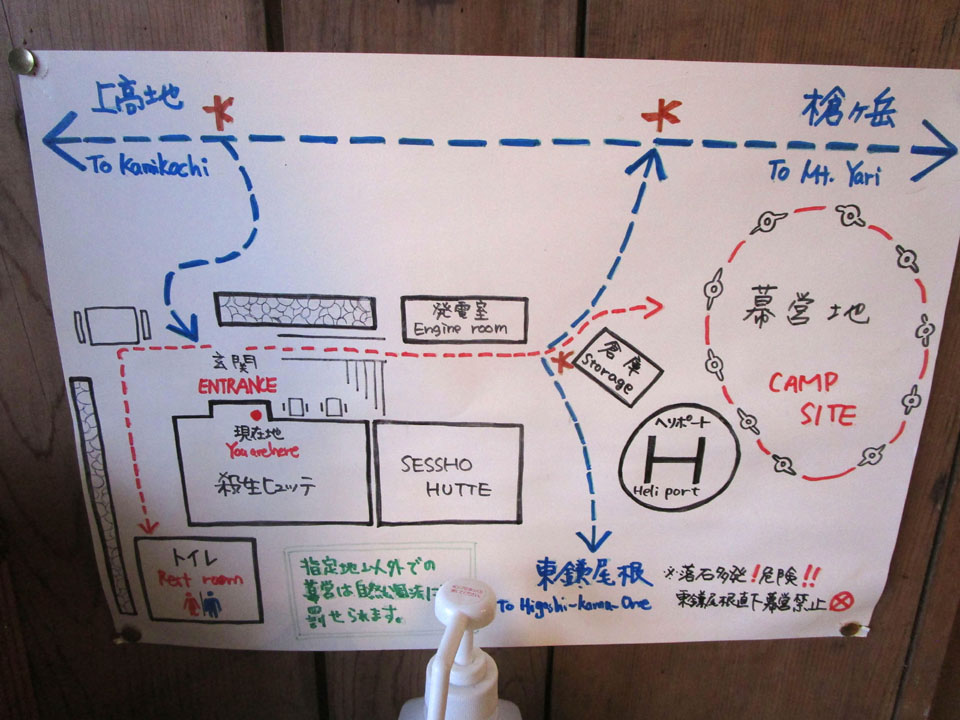 上高地
To Kamikochi
槍ヶ岳
To Mt. Yari
発電室
Engine room
倉庫
Storage
幕営地
CAMP
SITE
玄関
ENTRANCE
現在地
You are here
殺生ヒュッテ
SESSHO
HUTTE
ヘリポート
H
Heli port
トイレ
Rest room
指定地以外での
幕営は自然公園法に
罰せられます。
東鎌尾根
To Higashi-kama-One
※落石多発!危険!!
東鎌尾根直下幕営禁止